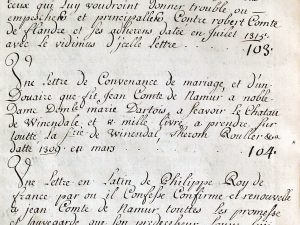 ceux qui luy voudroint donner trouble, ou
empeschemt et principallemt Contre robert Comte
de flandre et ses adherens datée en Juillet 1315.
avec le vidimus d'jcelle Lettre . . . . 103.
Une Lettre de Convenance de mariage, et d'un
Douaire que fit Jean Comte de Namur a noble
Dame Dame marie Dartois, a scavoir le Chateau
de Winendale, et mille livre a prendre sur
toutte la Srie de Winendal, Roullers
datté 1309. en mars . . . . 104.
Une Lettre en Latin de Philippe Roy de
france par ou il Confesse Confirme et renouvelle
a jean Comte de Namur, touttes les promesses
et sauvegarde que son predecesseur